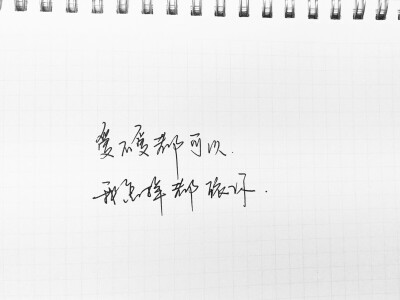 爱不爱都可以.
我怎样都依你.